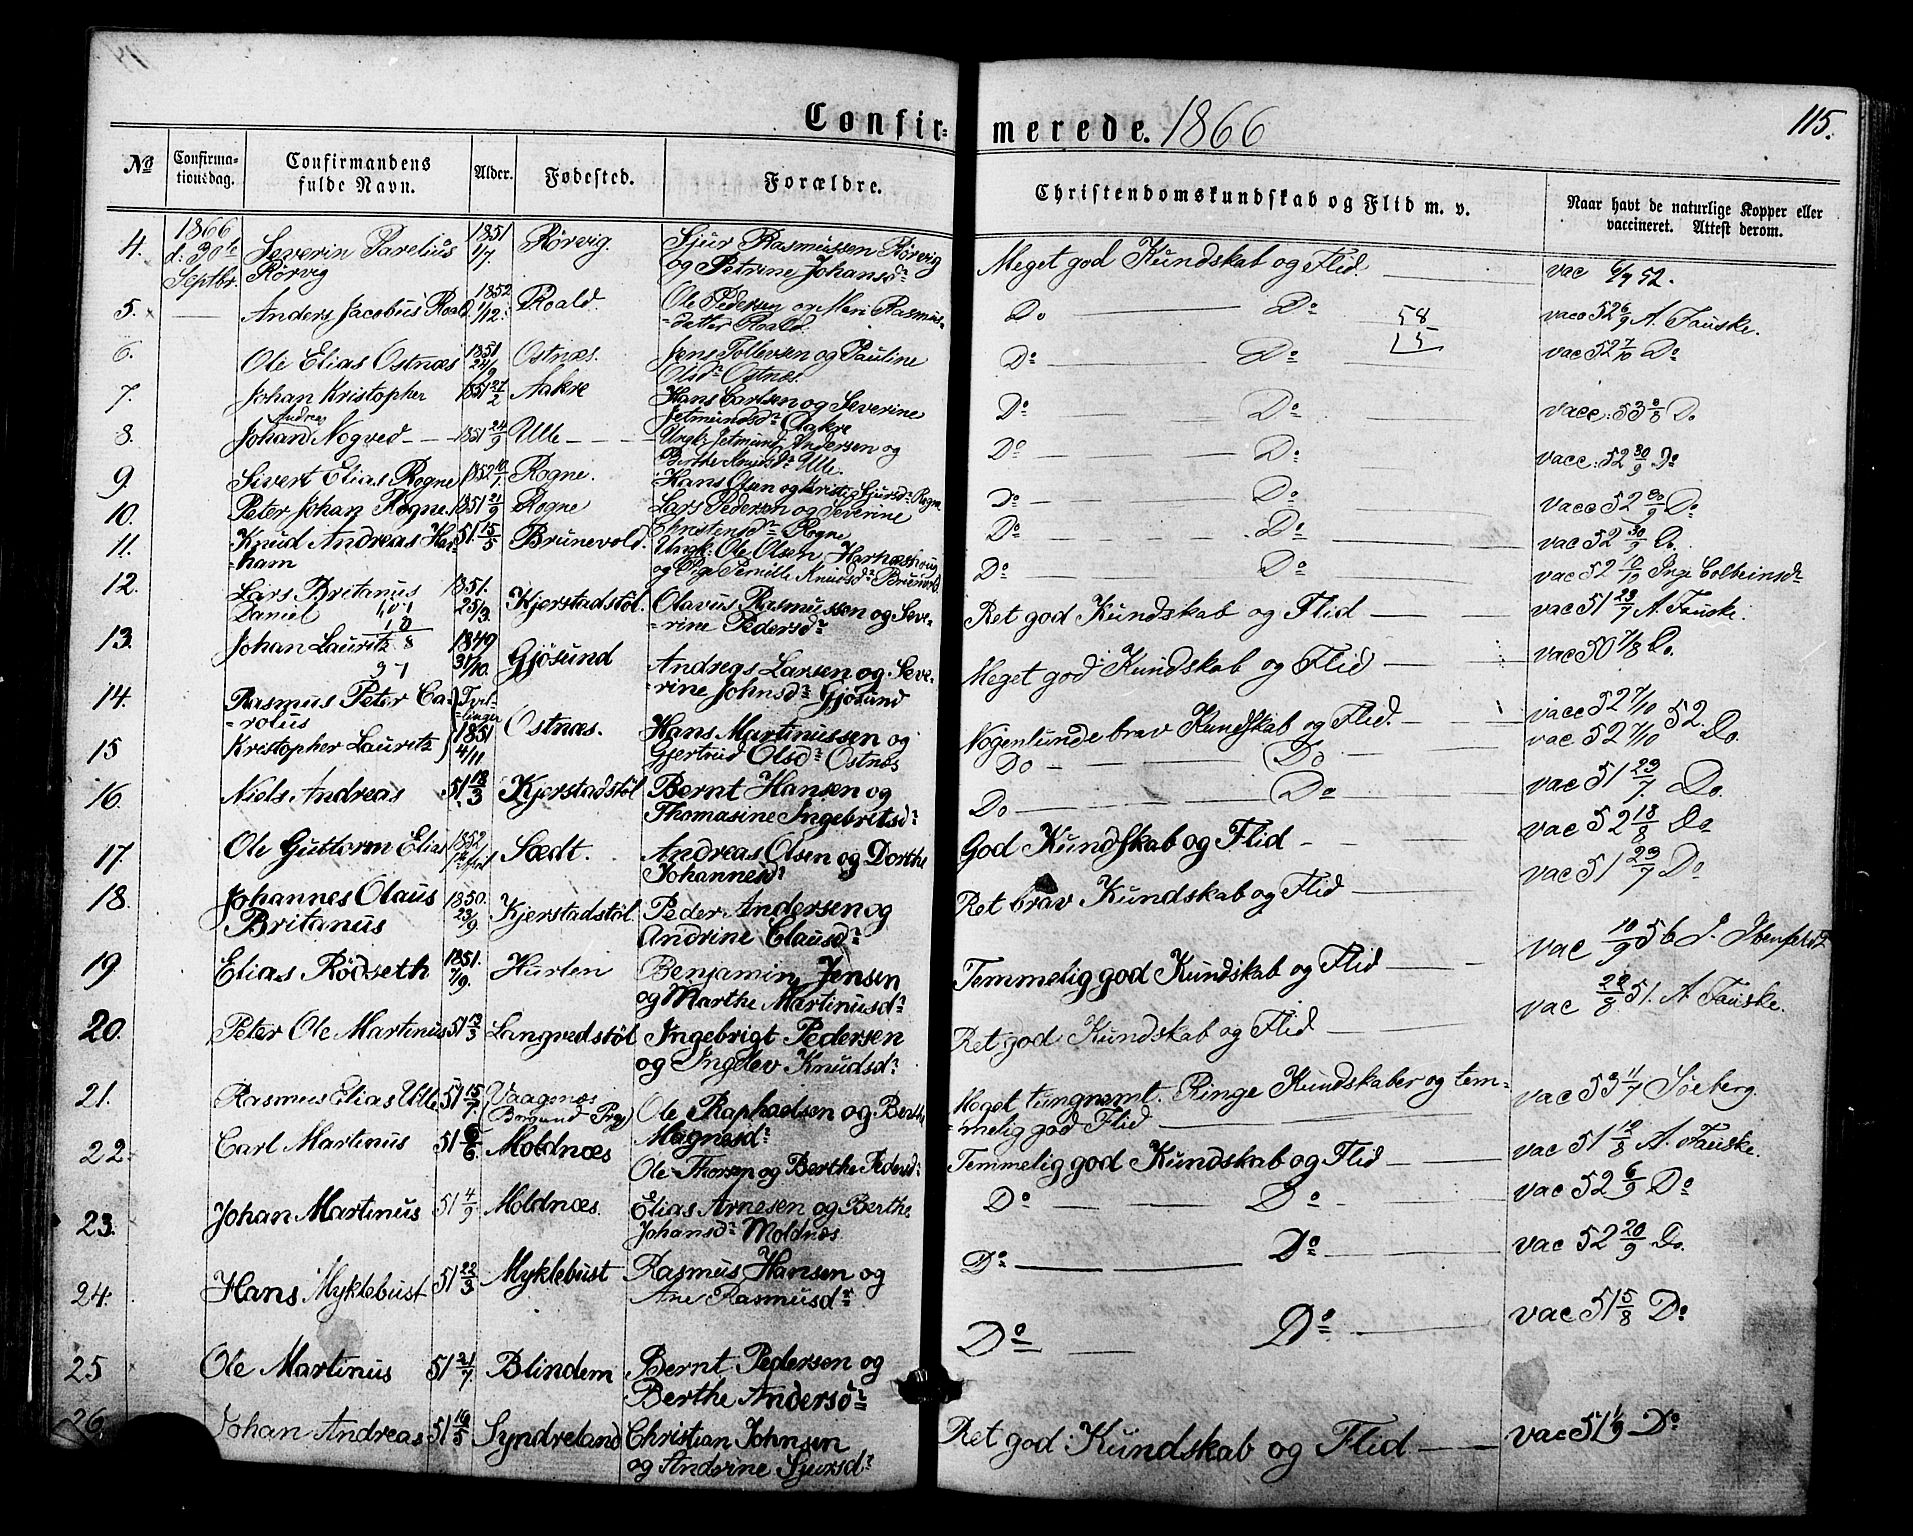 Confirmerede. 1866
115.
No Confirmationsdag. Confirmandens fulde Navn. Alder. Fødested. Forældre. Christendomskundskab og Flid m. v. Naar havt de naturlige Kopper eller vaccineret. Attest derom.
4. 1866 d. 30te Septbr. Severin Parelius Rörvig 1851 1/7 Rörvig. Sjur Rasmussen Rörvig og Petrine Johansd: Meget god Kundskab og Flid. vac 6/9 52.
5. Anders Jacobus Roald 1852 1/12. Roald. Ole Pedersen og Mari Rasmusdatter Roald. Do Do 58 15 vacc 52 6/9 A. Fauske.
6. Ole Elias Ostnæs 1851 24/9 Ostnæs. Jens Tollevsen og Pauline Olsd: Ostnæs. Do Do vac 52 7/10 Do
7. Johan Kristopher 1851 27/2 Aakre Hans Carlsen og Severine Jetmundsd: Aakre Do Do vacc: 53 8/8 Do
8. Johan Andreas Nogved 1851 24/9 Ulle Ungk: Jetmund Andersen og Berthe Knudsd: Ulle. Do Do vacc: 52 30/9 Do
9 Sivert Elias Rogne 1852 10/1. Rogne. Hans Olsen og Kristi Sjursd: Rogne Do Do vacc 52 30/9 Do
10. Peter Johan Rogne 1851 21/9 Rogne Lars Pedersen og Severine Christensd: Rogne Do Do vac 52 30/9 Do.
11. Knud Andreas Harham 51. 15/5 Brunevold. Ungk: Ole Olsen Harhamshoug og Pige Pernille Knudsd: Brunevold. Do Do vac 52 10/10 Inge Colbeinsd:
12. Lars Britanus Daniel 1851. 25/3. Kjerstadstöl. Olavus Rasmussen og Severine Pedersd: Ret god Kundskab og Flid vac 51 23/7 A. Fauske.
13. Johan Lauritz 1849 31/10. Gjösund Andreas Larsen og Severine Johnsd: Gjösund Meget god Kundskab og Flid vac 50 7/8 Do.
14. Rasmus Peter Carolus Tvillinger 1851 4/11 Ostnæs. Hans Martinussen og Gjertrud Olsd: Ostnæs Nogenlunde brav Kundskab og Flid. vacc 52 7/10 52.
15 Kristopher Lauritz Do Do vac 52 7/10 Do.
16. Niels Andreas 51 18/3 Kjerstadstöl Bernt Hansen og Thomasine Ingebritsd: Do Do vac 51 23/7. Do.
17. Ole Guttorm Elias 1852 Sædt. Andreas Olsen og Dorthe Johannesd: God Kundskab og Flid vac 52 18/8 Do
18. Johannes Olaus Britanus 1850. 23/9. Kjerstadstöl. Peder Andersen og Andrine Clausd: Ret brav Kundskab og Flid vac 51 23/7 Do
19 Elias Rödseth 1851. 7/9. Hurlen Benjamin Jensen og Marthe Martinusd: Temmelig god Kundskab og Flid vac 10/9 56 J. Ibenfeldt
20. Peter Ole Martinus 51 13/3 Langvedstöl Ingebrigt Pedersen og Ingelev Knudsd: Ret god Kundskab og Flid vac 20/8 51. A. Fauske.
21. Rasmus Elias Ulle 51 15/7. Vaagsnæs (Borgund Prg) Ole Raphaelsen og Berthe Magnesd: Meget tungnemt. Ringe Kundskaber og temmelig god Flid vac 53 1/7 Søeberg.
22. Carl Martinus 51 6/6. Moldnæs Ole Thorsen og Berthe Pedersd: Temmelig god Kundskab og Flid vac 51 10/8 A. Fauske.
23. Johan Martinus 51 4/9 Moldnæs. Elias Arnesen og Berthe Johansd: Moldnæs. Do Do vac 52 6/9 Do
24. Hans Myklebust 51 22/3 Myklebust Rasmus Hansen og Ane Rasmusd: Do Do vac 52 20/9 Do.
25 Ole Martinus 51 21/7. Blindem Bernt Pedersen og Berthe Andersd: Do Do vac 51 5/8 Do
26. Johan Andreas 51 19/5 Syndreland Christian Johnsen og Anderine Sjursd: Ret god Kundskab og Flid vac 51 1/9 Do